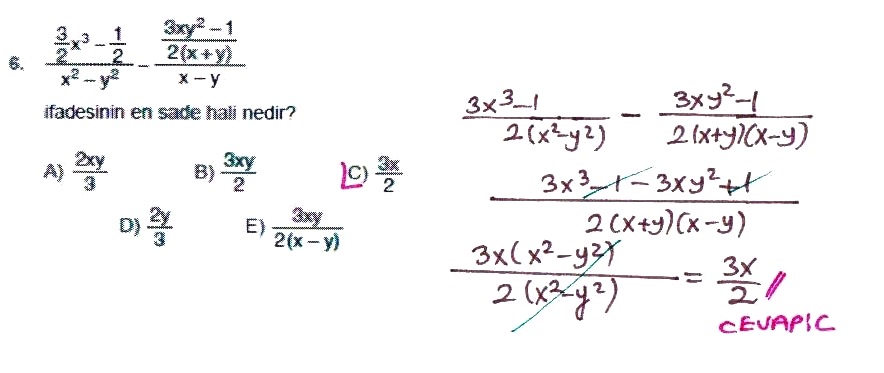 6. (3/2 x³ – 1/2)/(x² – y²) – ((3xy² – 1)/(2(x + y)))/(x – y)
ifadesinin en sade hali nedir?
A) 2xy/3 B) 3xy/2 C) 3x/2
D) 2y/3 E) 3xy/(2(x – y))
(3x³–1)/(2(x²–y²)) – (3xy²–1)/(2(x+y)(x–y))
(3x³–1–3xy²+1)/(2(x+y)(x–y))
3x(x²–y²)/(2(x²–y²)) = 3x/2 //
CEVAP C